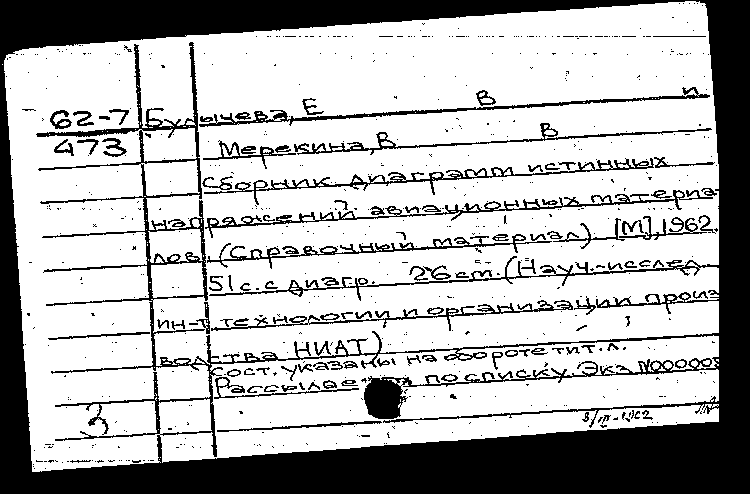 62-7 Булычева, Е В и
473 Мерекина, В В
Сборник диаграмм истинных
напряжений авиационных материа-
лов. (Справочный материал) [М], 1962.
51 с. с диагр. 26 см. (Науч.-исслед.
ин-т технологии и организации произ-
водства НИАТ)
Сост. указаны на обороте тит. л.
Рассылается по списку. Экз. N00000
3